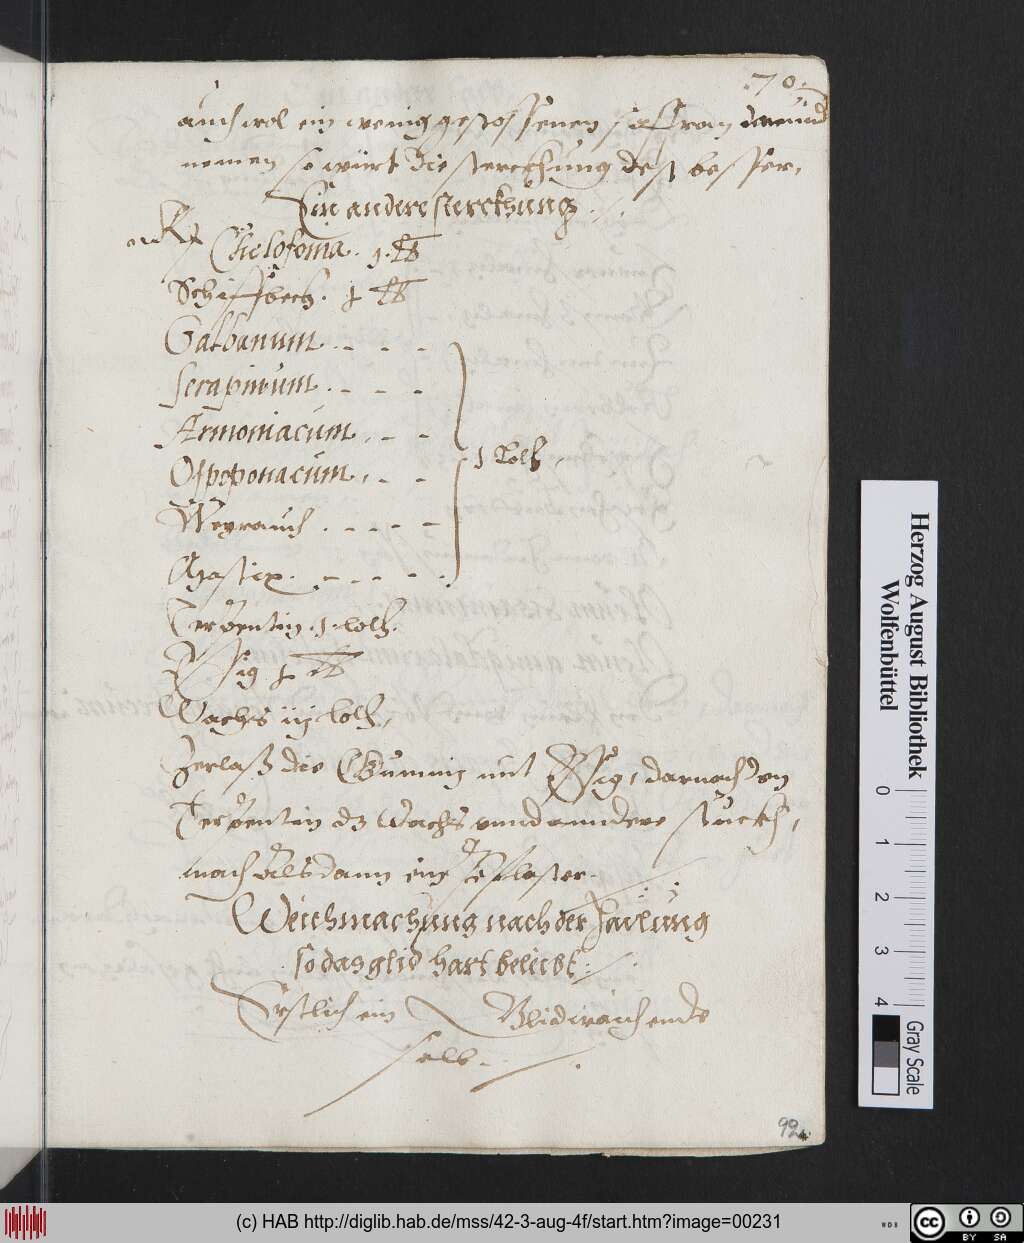 70.
auch wol ein wenig gestossenen saffran darund
nemen so würt die sterckhung dest besser,
Ein andere sterckhung
℞ Chelofoma. 1. ℔
Schiffbech. 1 ℔
Galbanum . - - -
Serapinum . - - -
Armoniacum, - -
Oppoponacum, - -
1 Loth,
Weyrauch . - - - -
Mastix. - - - -
Terpentin . 1 . loth.
Essig 1 ℔
Wachs iij loth,
Zerlaß die Gummig mit Essig, darnach den
Terpentin dz Wachs unnd anndere stuckh,
mach alsdann ein pflaster.
Weichmachung nach der Hailung
so das glid hart beleibt
Erstlich ein Glidwaichende
salb.
92
Herzog August Bibliothek
Wolfenbüttel
0 1 2 3 4
Gray Scale
(c) HAB http://diglib.hab.de/mss/42-3-aug-4f/start.htm?image=00231
WDB
cc BY SA